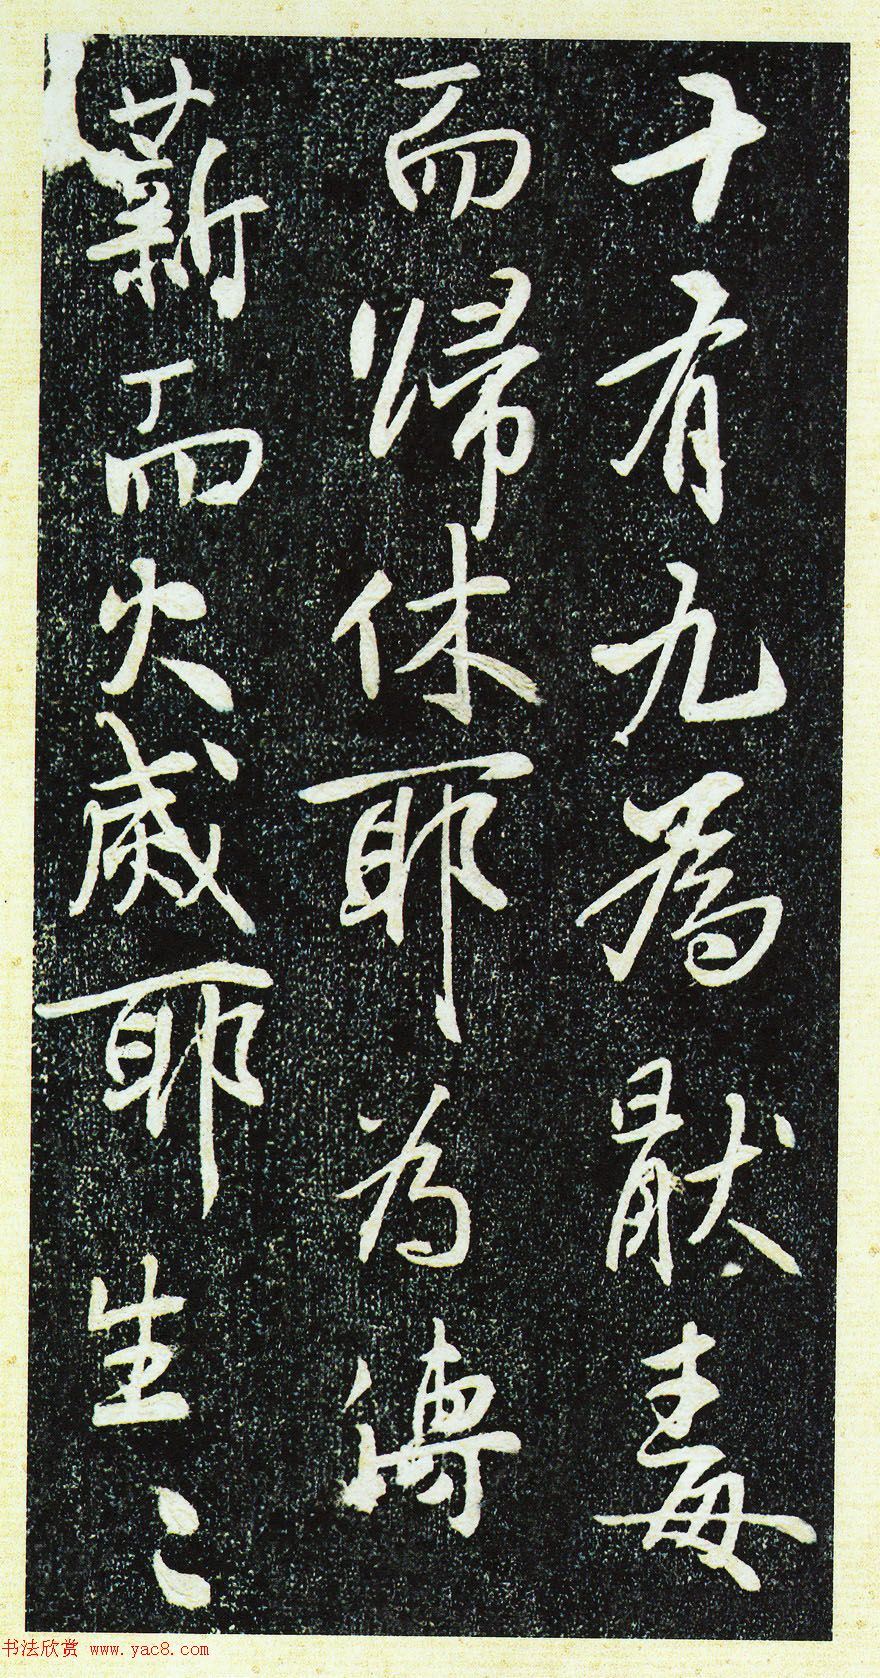 十有九為猒毒
而歸休耶為傳
薪而火烕耶生〻
书法欣赏 www.yac8.com